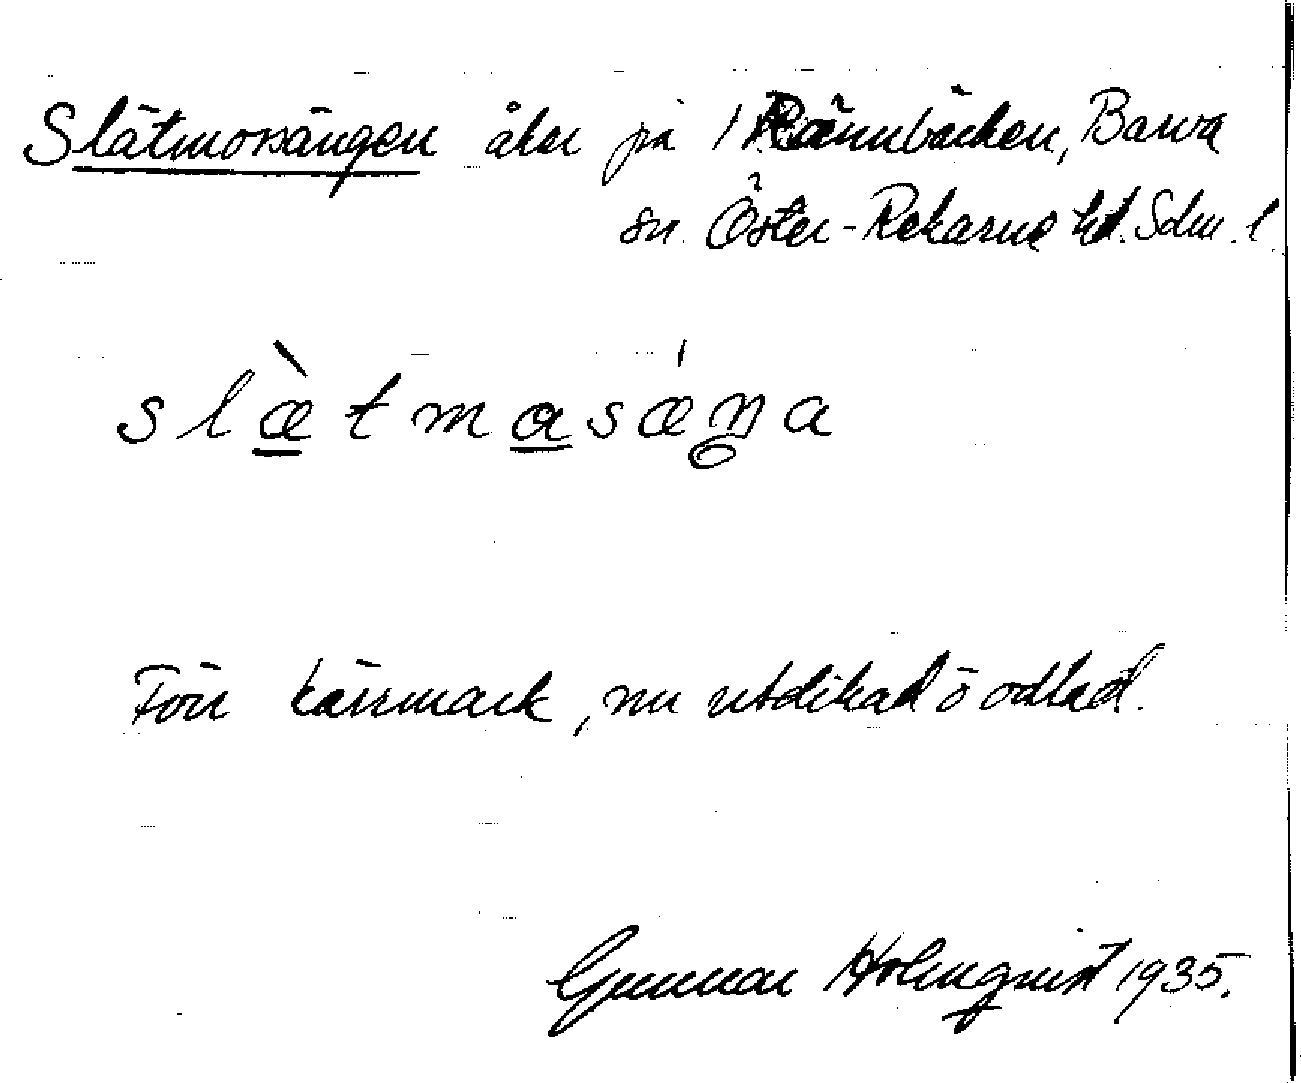 Slätmossängen åker på 1 Rännbäcken, Barva
sn. Öster-Rekarne hd. Sdm. l.
slæ̀tmasǽŋa
Förr kärrmark, nu utdikad o odlad.
Gunnar Holmquist 1935.